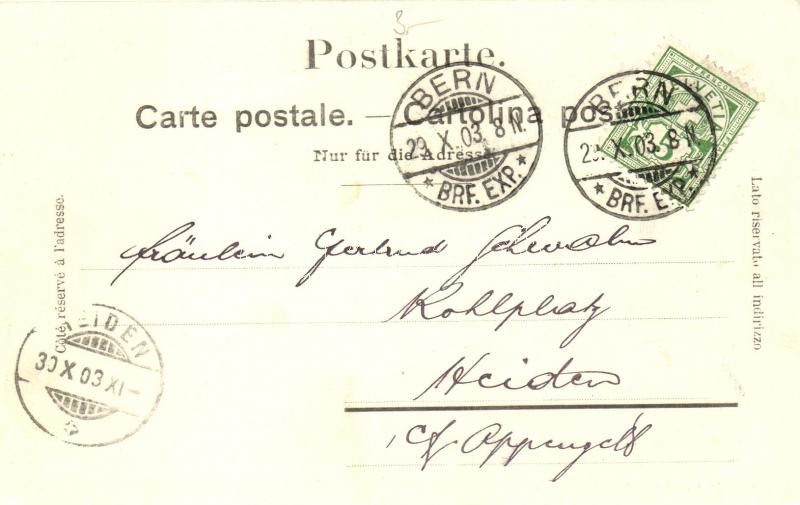 3-
Postkarte.
Carte postale. — Cartolina post
Nur für die Adresse
BERN
29. X. 03. 8 N.
★ BRF. EXP. ★
BERN
29. X. 03. 8 N.
★ BRF. EXP. ★
FRANCO
HELVETIA
5
Côté réservé à l'adresse.
Lato riservato all indirizzo
Fräulein Gertrud
Kohlplatz
Heiden
Ct Appenzell
HEIDEN
30 X 03 XI-